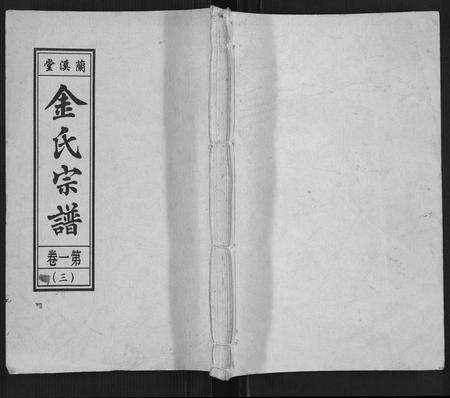 蘭溪堂
金氏宗譜
第一卷
(三)